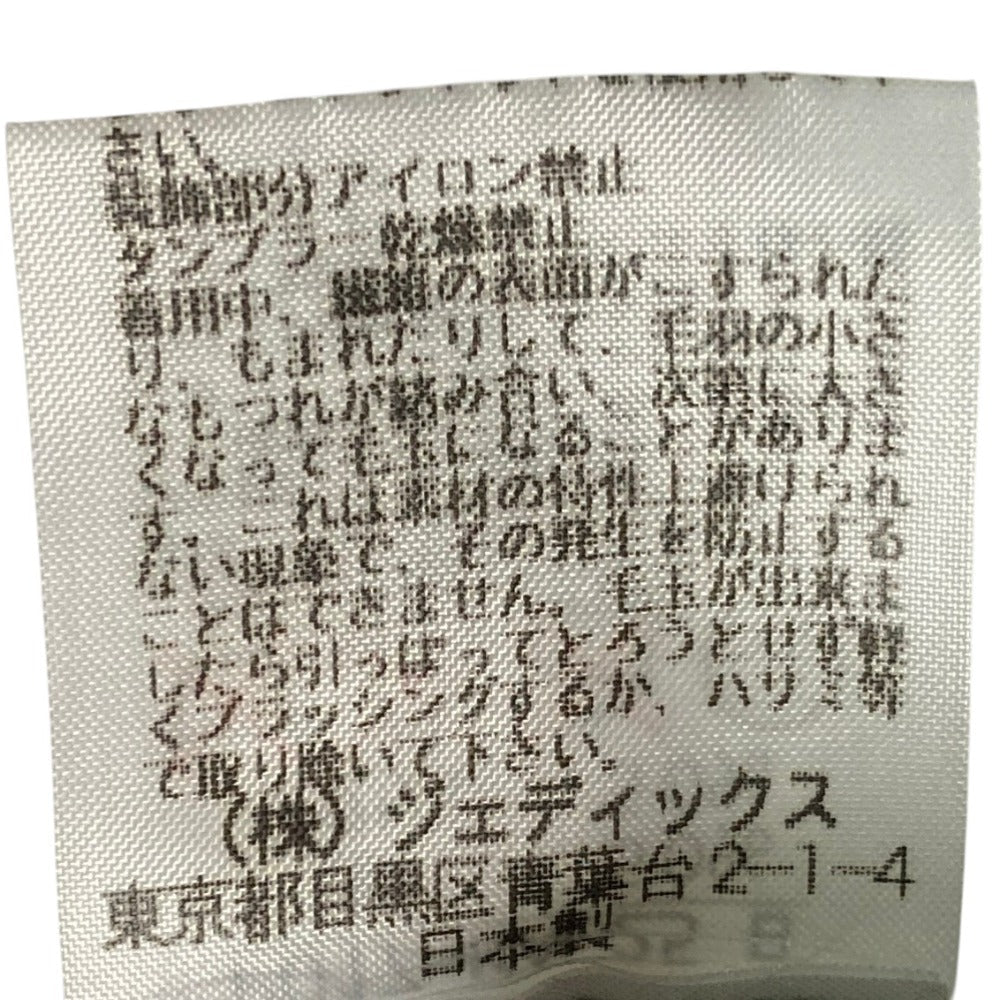 さい。
タンブラー乾燥禁止
部分アイロン禁止
着用中、繊維の表面がこすられた
り、もまれたりして、毛羽の小さ
なもつれが絡み合い、次第に大き
くなって毛玉になる、とがありま
す。これは素材の特性上避けられ
ない現象で、その発生を防止する
ことはできません。毛玉が出来ま
したら引っぱってとろうとせず軽
くブラッシングするか、ハサミ等
で取り除いて下さい。
(株)ジェディックス
東京都目黒区青葉台2-1-4
日本製